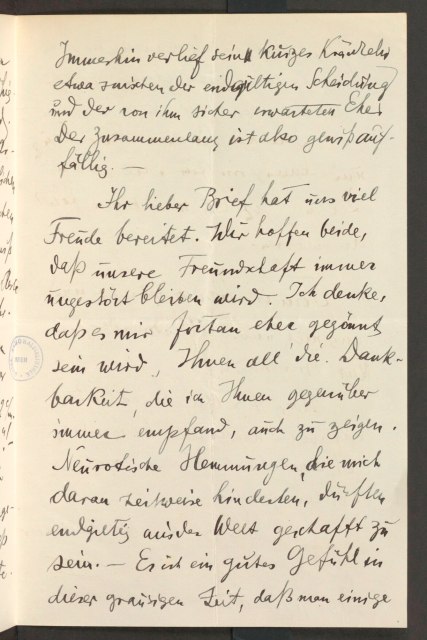 Immerhin verlief sein kurzes Kränkeln
etwa zwischen der endgültigen Scheidung
und der von ihm sicher erwarteten Ehe.
Der Zusammenhang ist also gewiß auf-
fällig. —
Ihr lieber Brief hat uns viel
Freude bereitet. Wir hoffen beide,
daß unsere Freundschaft immer
ungestört bleiben wird. Ich denke,
daß es mir fortan eher gegönnt
sein wird, Ihnen all' die Dank-
barkeit, die ich Ihnen gegenüber
immer empfand, auch zu zeigen.
Neurotische Hemmungen, die mich
daran zeitweise hinderten, dürften
endgiltig aus der Welt geschafft zu
sein. — Es ist ein gutes Gefühl in
dieser grausigen Zeit, daß man einige